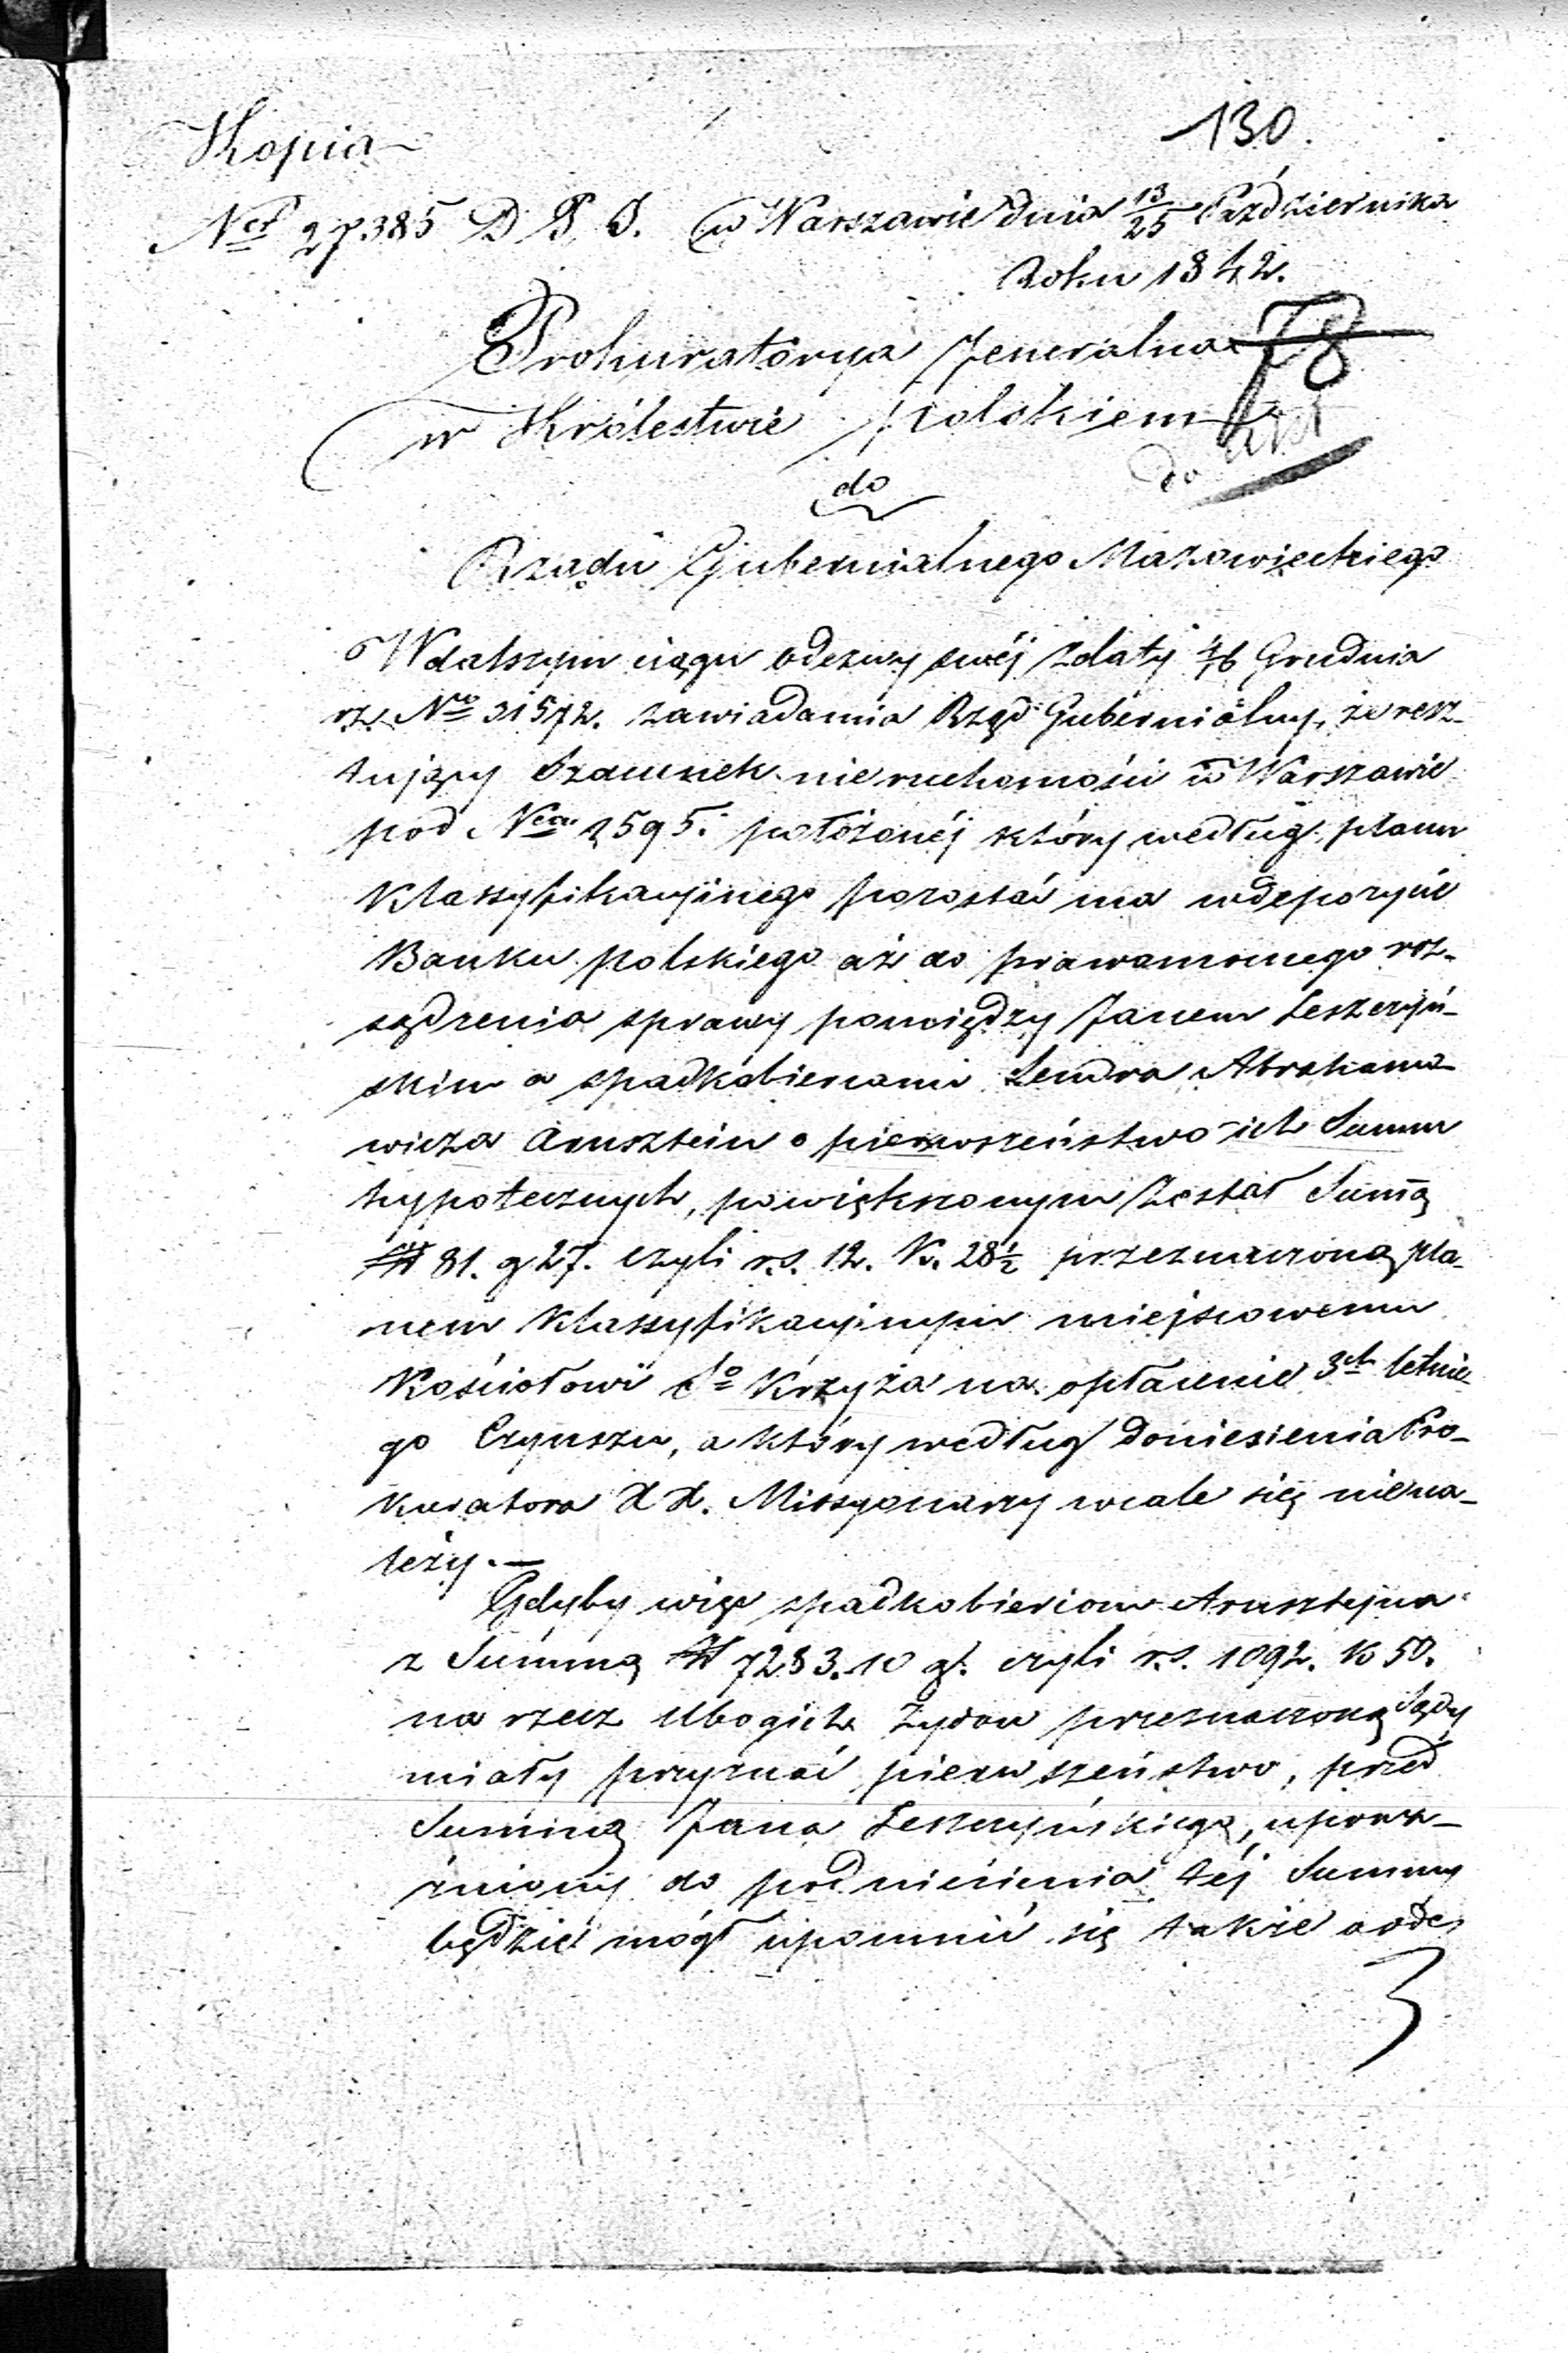 Kopia
130.
Nr 27385 D. P. S. w Warszawie dnia 13/25 Października
Roku 1842.
Prokuratorya Jeneralna
78
w Królestwie Polskiem
do akt
do
Rządu Gubernialnego Mazowieckiego
W dalszym ciągu odezwy swéj z daty 4/16 Grudnia
rz. No 31572. zawiadamia Rząd Gubernialny, że resz-
tujący Szacunek nieruchomości w Warszawie
pod Nrem 2595. położonéj który według planu
Klassyfikacyjnego pozostać ma w depozycie
Banku polskiego aż do prawomocnego roz-
sądzenia sprawy pomiędzy Janem Leszczyń-
skim a spadkobiercami Lendra Abrahamo-
wicza Arnsztein o pierwszeństwo ich Summ
hypotecznych, powiększonym został Sumą
Zł 81. g 27. czyli r.s. 12. k. 28½ przeznaczoną pla-
nem Klassyfikacyjnym miejscowemu
Kościołowi So Krzyża na opłacenie 3ch letnie-
go Czynszu, a który według doniesienia Pro-
kuratora XX. Missyonarzy wcale się niena-
leży.—
Gdyby więc spadkobiercom Arnsztejna
z Summą Zł 7283.10 gr. czyli r.s. 1092. k 50.
na rzecz Ubogich Żydów przeznaczoną Sądy
miały przyznać pierwszeństwo, przed
Summą Jana Leszczyńskiego, upowa-
żniony do podniesienia téj Summy
będzie mógł upomnić się także o ode-